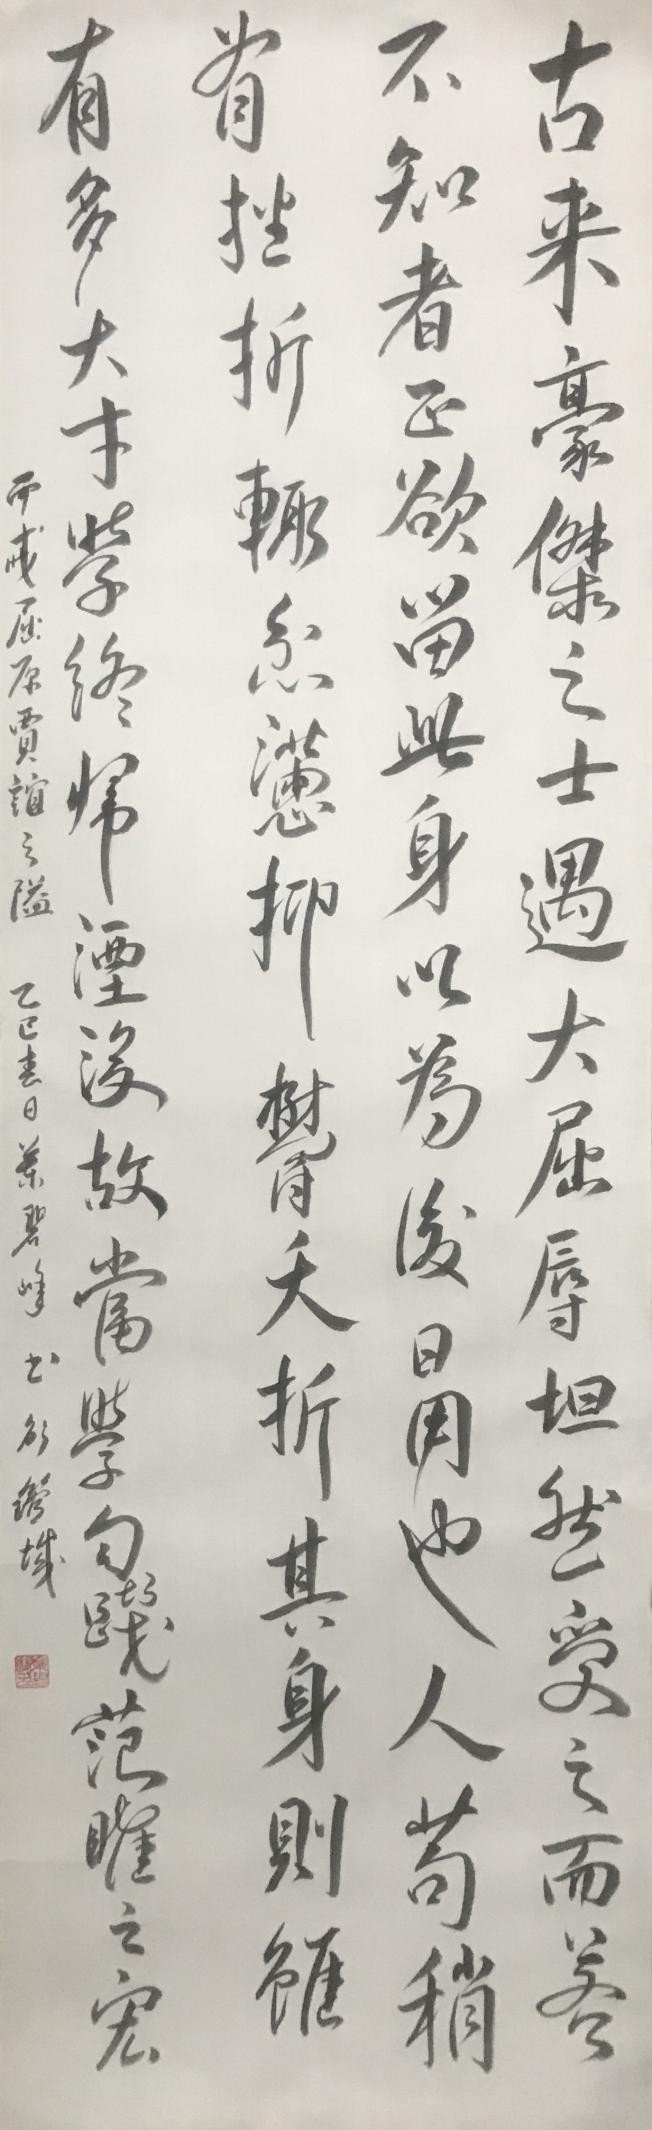 古来豪傑之士遇大屈辱坦然受之而若
不知者正欲留此身以為後日用也人苟稍
有挫折輒忿懣抑鬱夭折其身則雖
有多大才學終歸湮沒故當學勾踐范雎之宏
而戒屈原賈誼之隘 乙巳春日葉碧峰書於鷺城